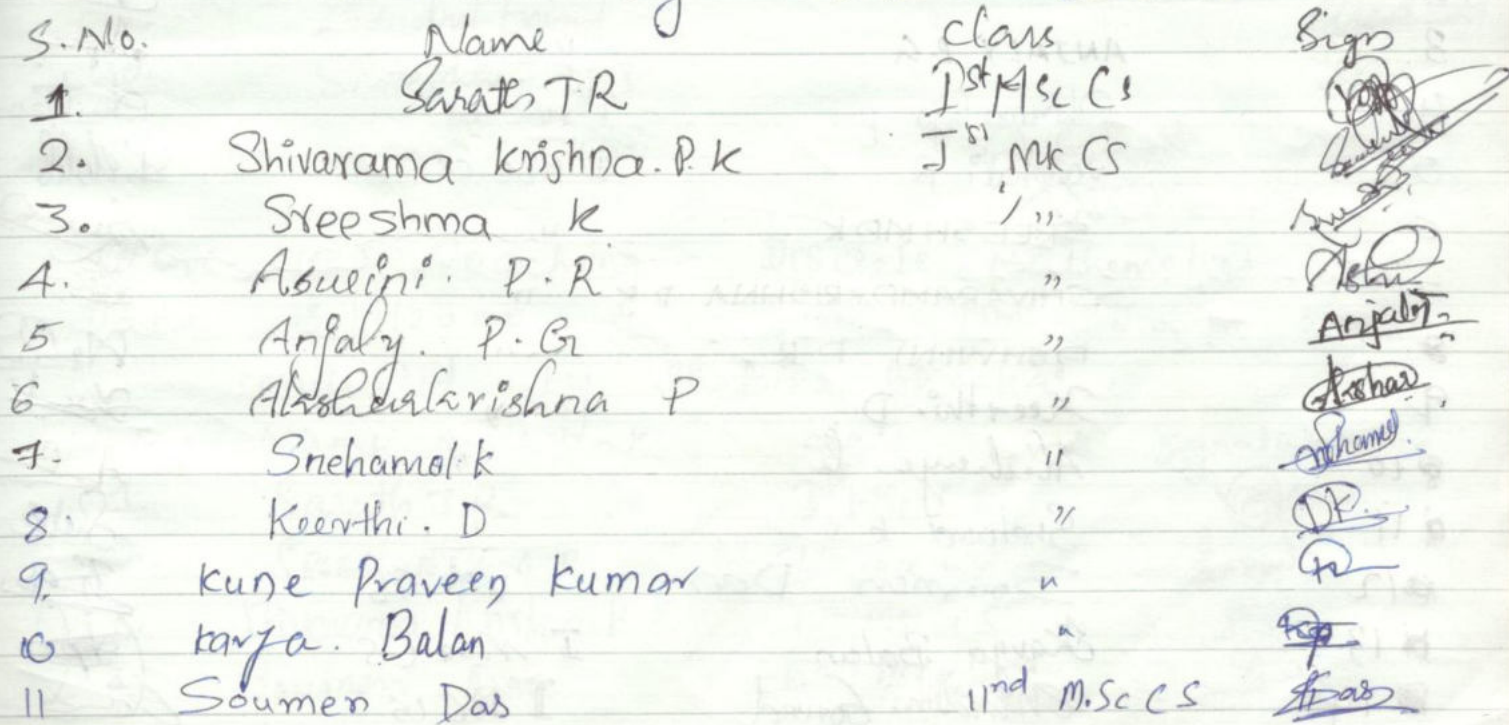 S.No. Name Class Sign
1. Sarath TR Ist MSc CS
2. Shivarama Krishna. P. K Ist MSc CS
3. Sreeshma K ,,
4. Aswini. P. R ,, Ashu
5 Anjaly. P. G ,, Anjaly
6 Akshaykrishna P ,, Akshay
7. Snehamol K ,, Snehamol
8. Keerthi. D ,, DK.
9. Kune Praveen Kumar ,,
10 Karya. Balan ,,
11 Soumen Das IInd M.Sc CS SDas